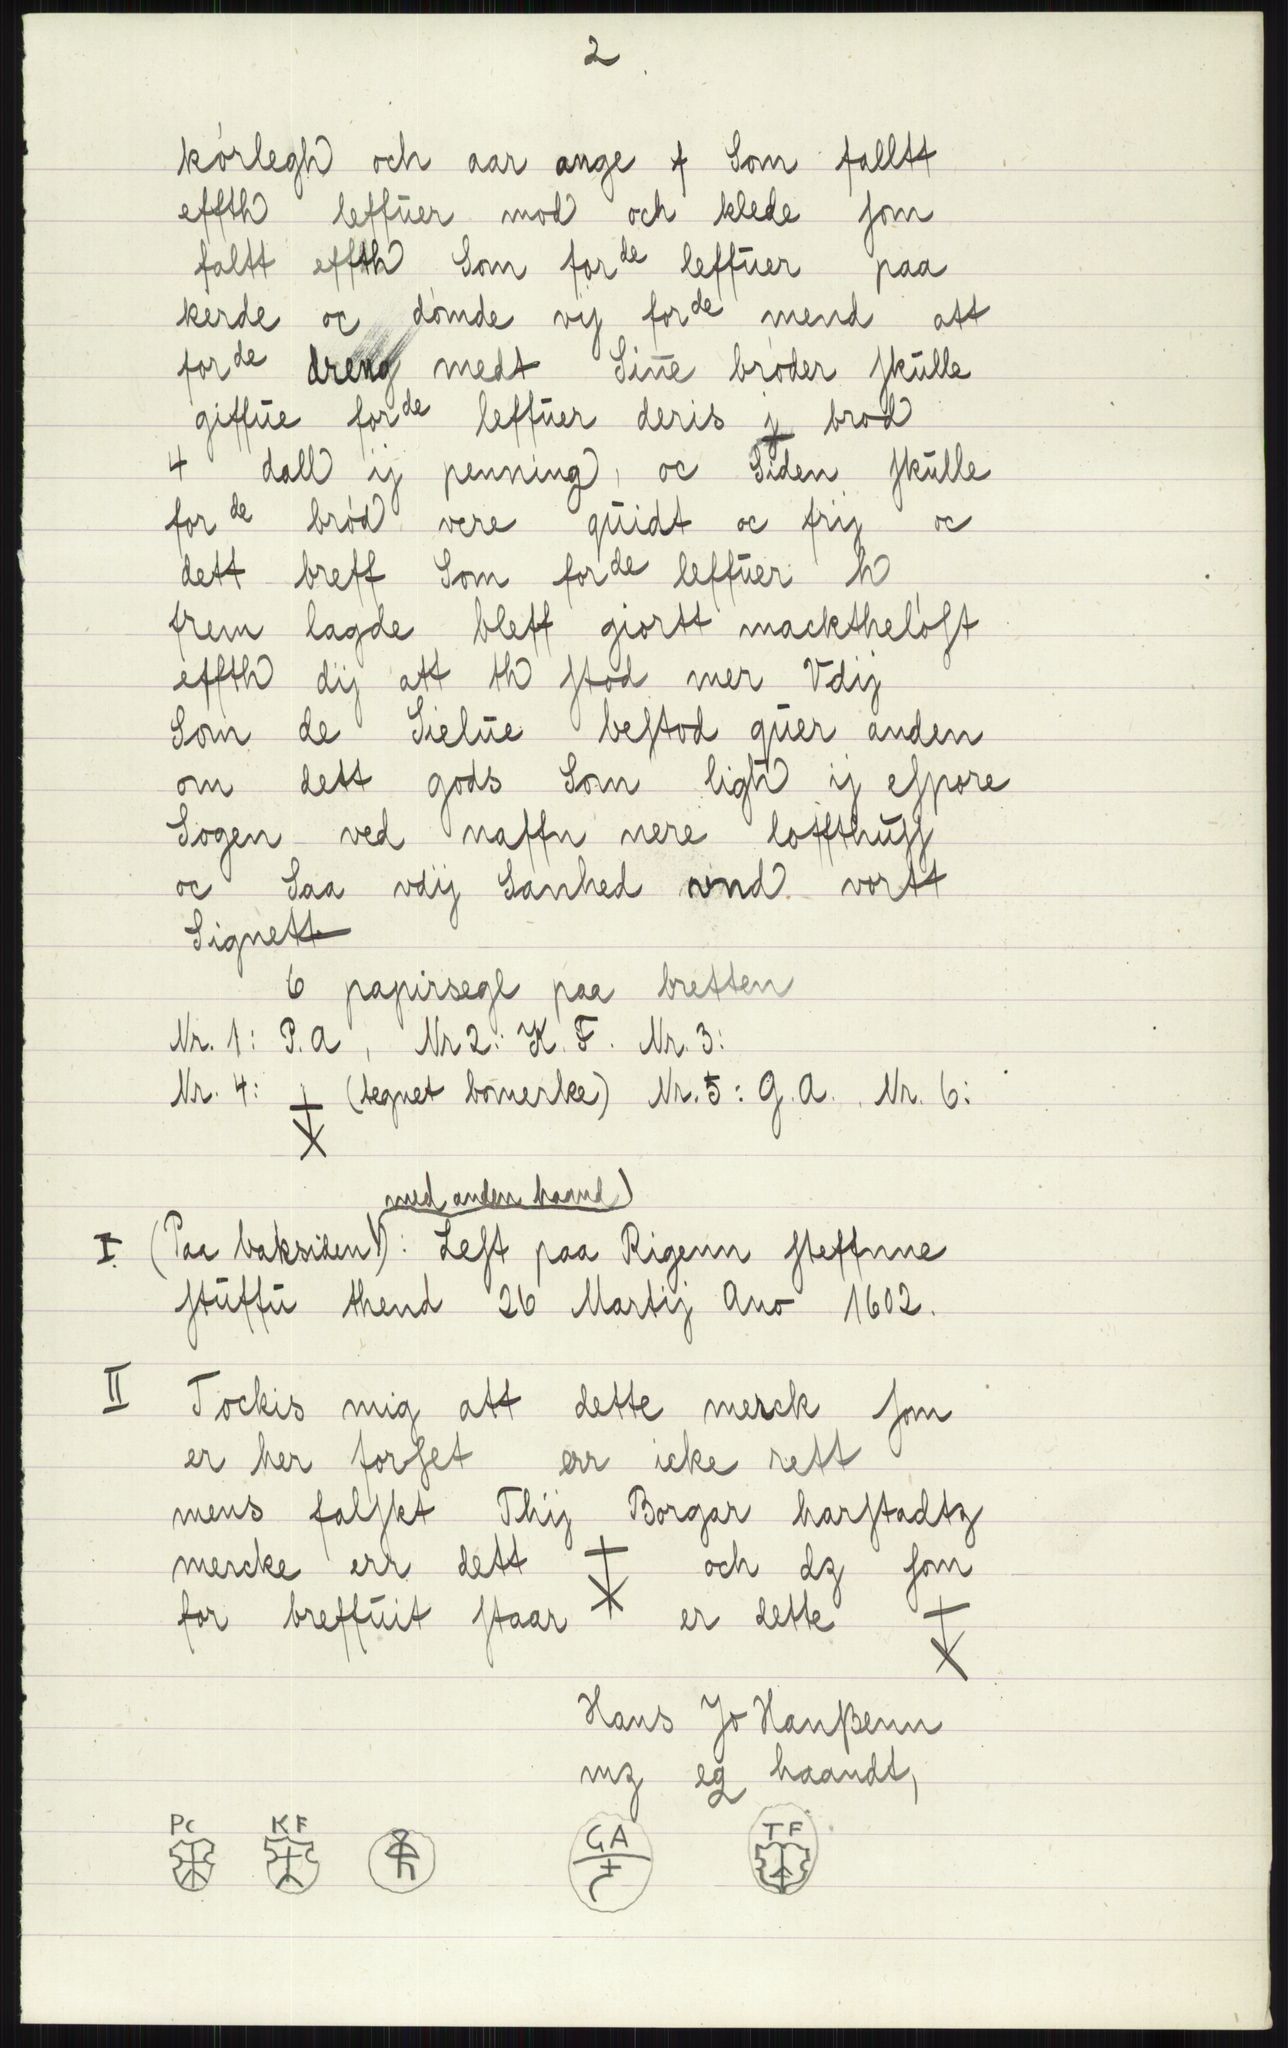 2
kórlegh och aar ange f Som falltt
effth leffuer mod och klede som
faltt effth Som for de leffuer paa
kerde oc dómde vij for de mend att
for de dreng medt Sine bróder skulle
giffue for de leffuer deris j brod
4 dall ij penning, oc Siden skulle
for de bród vere quidt oc frij oc
dett breff Som for de leffuer h
frem lagde bleff giortt macktheló̈st
effth dij att th stod mer Vdij
Som de Sielue bestod quer anden
om dett gods Som ligh ij espore
Sogen ved naffn nere loffthuss
oc Saa vdij Sanhed vnd vortt
Signett
6 papirsegl paa bretten
Nr. 1: P.A, Nr 2: K. F. Nr. 3:
Nr. 4: (tegnet bomerke) Nr. 5: G.A. Nr. 6:
med anden haand)
I (Paa baksiden): Lest paa Rigenn steffnne
stuffu thend 26 Martij Ano 1602.
II Tockis mig att dette merck som
er her forset err icke rett
mens falskt Thij Borgar harstadtz
mercke err dett och dz som
for breffuit staar er dette
Hans Jo Hanßenn
mz eg haandt,
PC KF GA TF